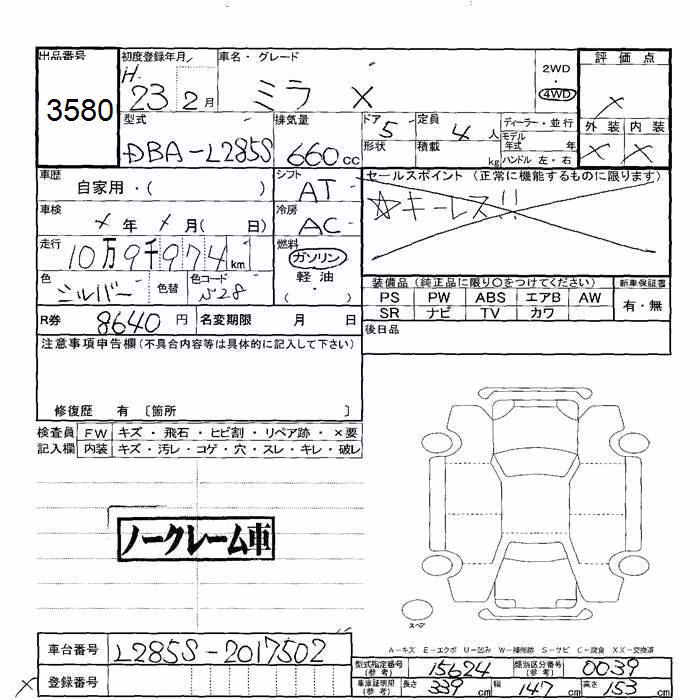 出品番号 初度登録年月 車名・グレード 評価点
3580 H. 23 2月 ミラ X 2WD ・ 4WD ×
型式 排気量 ドア 5 定員 4人 ディーラー・並行 外装 内装
DBA-L285S 660cc 形状 積載 kg モデル年式 年 ハンドル 左・右 × ×
車歴 自家用・( ) シフト AT セールスポイント (正常に機能するものに限ります)
車検 × 年 × 月( 日) 冷房 AC ☆キーレス!!
走行 10万9千974km 燃料 ガソリン
色 シルバー 色替 色コード S28 軽油 ・( ) 装備品 (純正品に限り○をつけてください) 新車保証書
PS PW ABS エアB AW 有・無
SR ナビ TV カワ
R券 8640円 名変期限 月 日 後日品
注意事項申告欄(不具合内容等は具体的に記入して下さい)
修復歴 有 〔箇所 〕
検査員 FW キズ・飛石・ヒビ割・リペア跡・×要
記入欄 内装 キズ・汚レ・コゲ・穴・スレ・キレ・破レ
ノークレーム車
スペア
A-キズ E-エクボ U-凹み W-補修跡 S-サビ C-腐食 XX-交換済
車台番号 L285S-2017502 型式指定番号(参考) 15624 類別区分番号(参考) 0039
× 登録番号 車庫証明用(参考) 長さ 339cm 幅 147cm 高さ 153cm